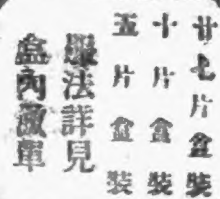 廿七片盒裝
十片盒裝
五片盒裝
服法詳見
盒內激單